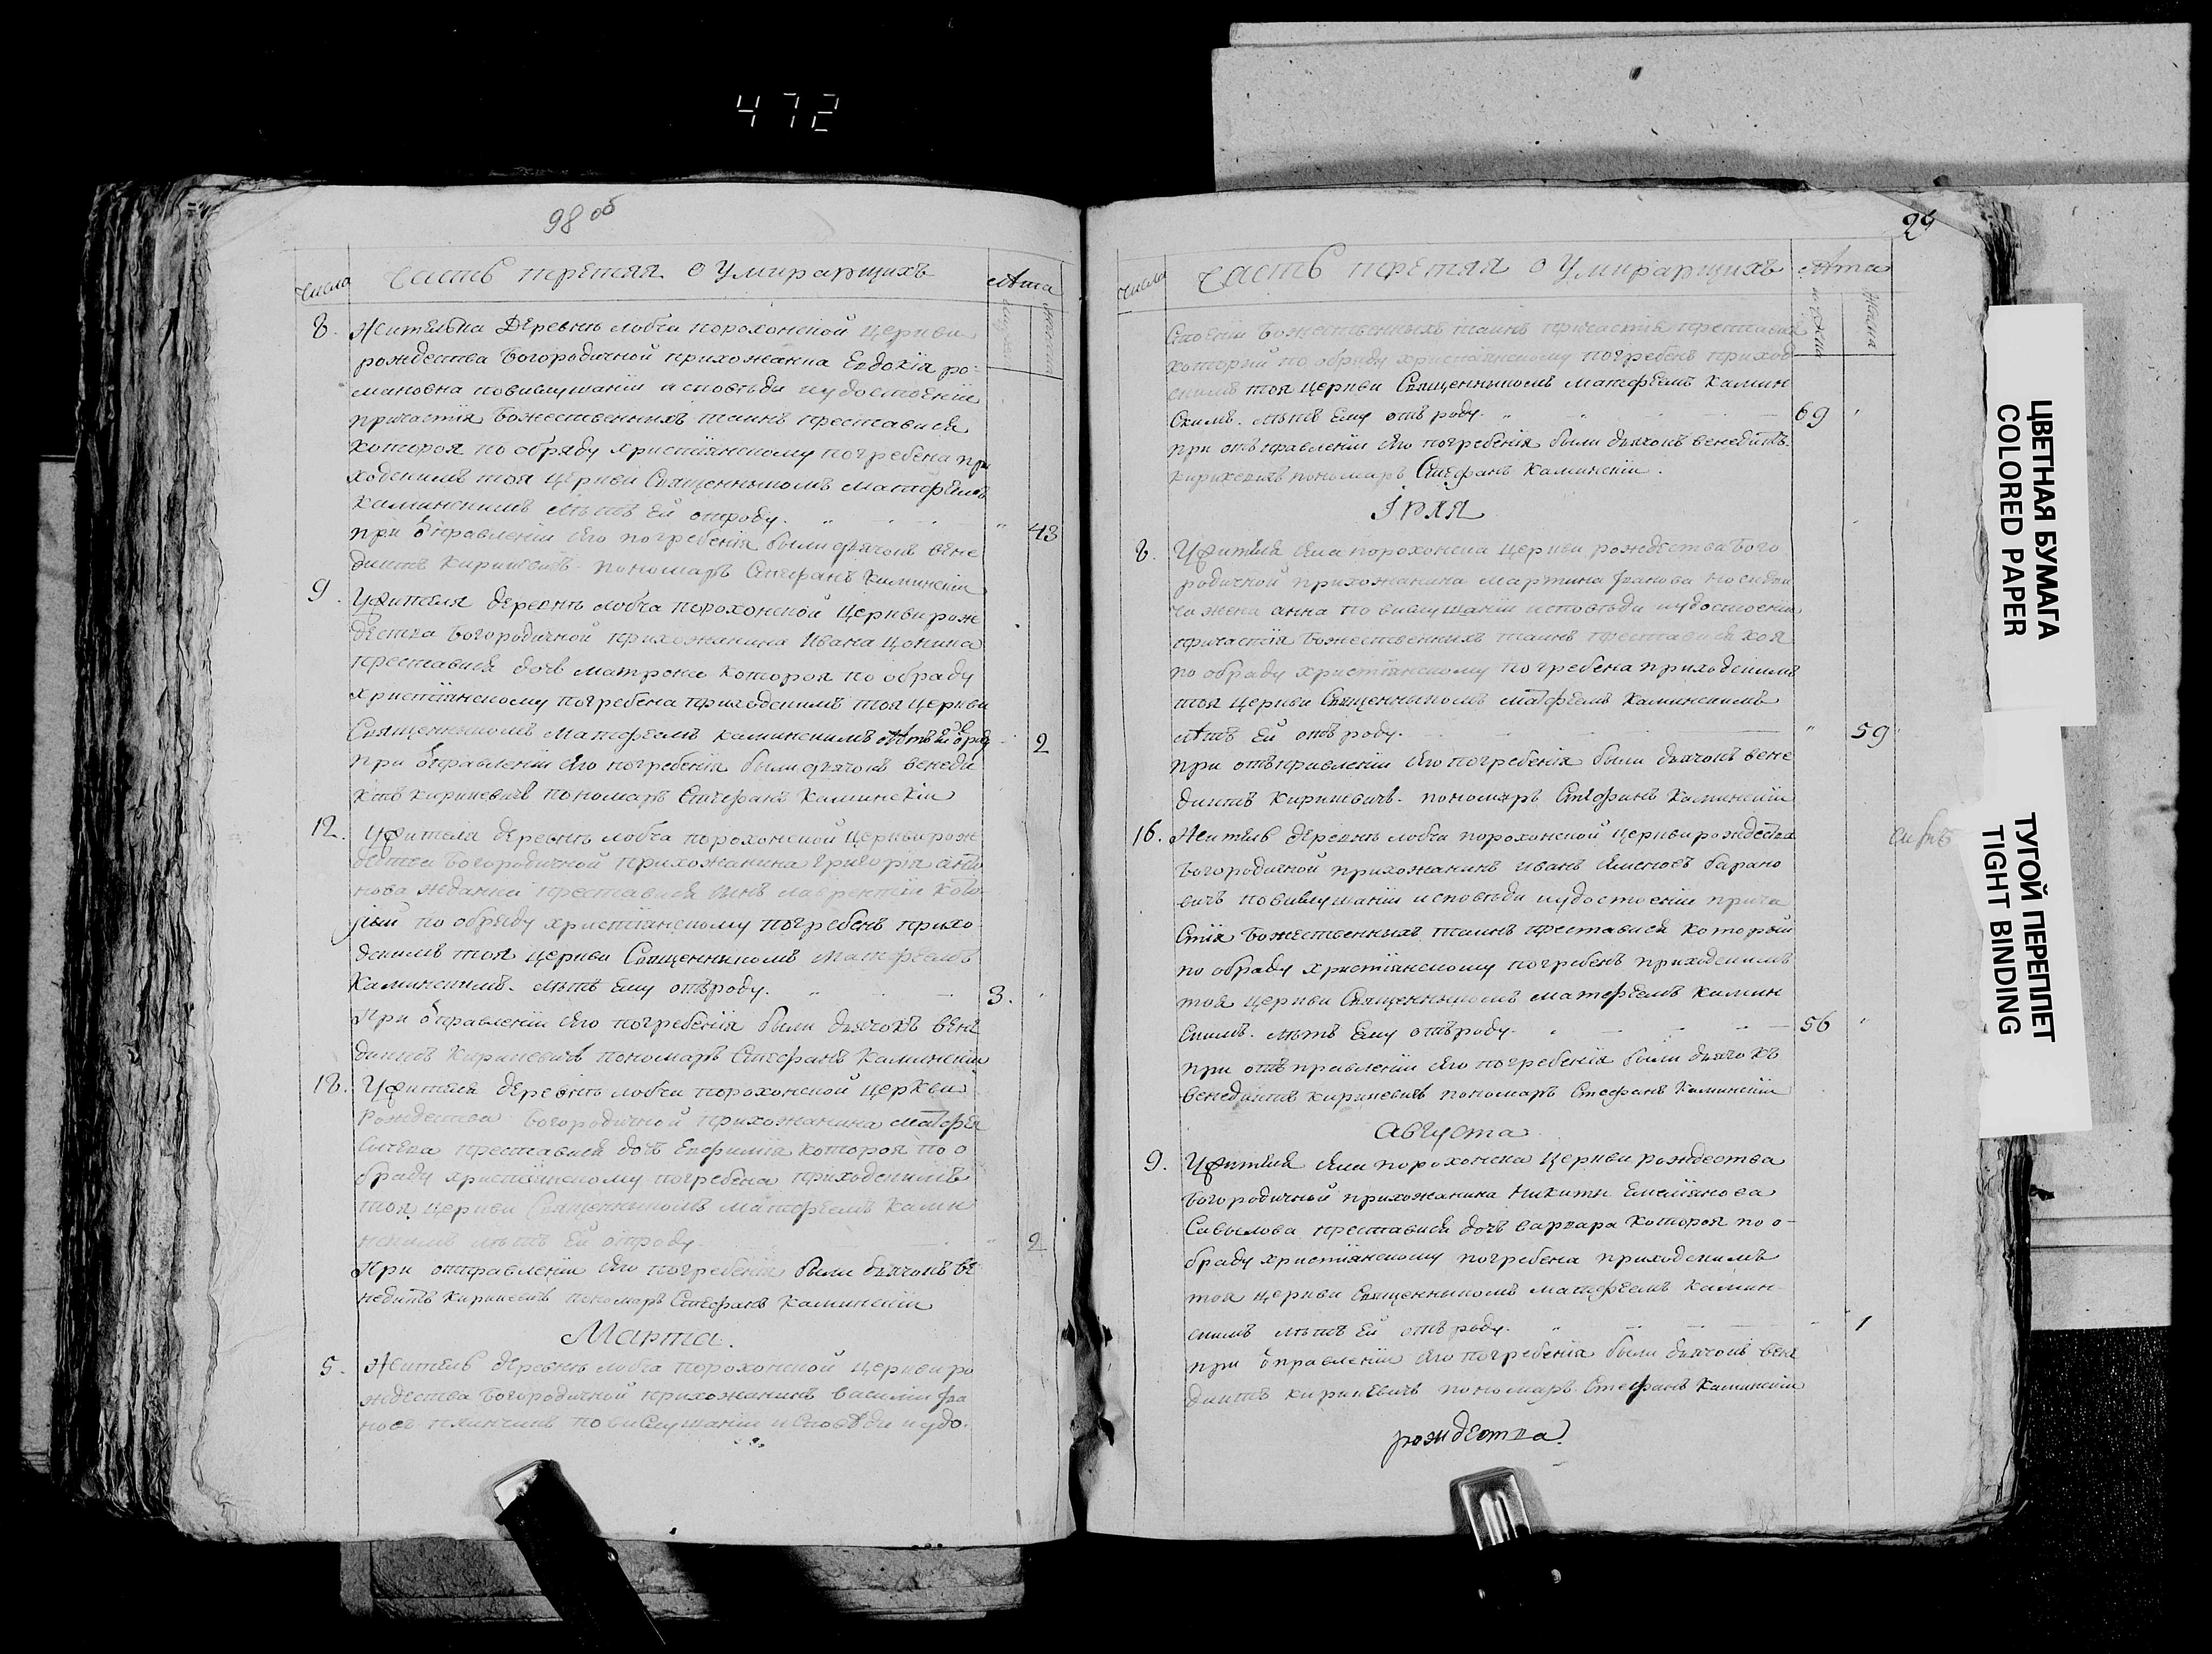 472
98 об
Числа
Часть третяя о Умирающихъ
Лѣта
мужеска
женска
8. Жителька Деревнѣ лобча порохонской церкви
рождества Богородичной прихожанка Евдокія ро-
мановна повислушаніи исповѣди иудостоеніи
причастія Божественнихъ таинъ преставися
которая по обряду христіянскому погребена при
ходскимъ тоя церкви Священникомъ матфеемъ
Каминскимъ лѣтъ ей отроду. 43
при отправленіи Его погребенія были дьячокъ вене
диктъ Кириневичъ пономаръ Стефанъ Каминскіи
9. У жителя деревнѣ лобча порохонской Церкви рож
дества Богородичной прихожанина Ивана
преставися дочь матрона которая по обряду
христіянскому погребена приходскимъ тоя церкви
Священникомъ Матфеемъ каминскимъ лѣтъ ей 2
при отправленіи Его погребенія были дьячокъ венеди
ктъ кириневичъ пономаръ Стефанъ Каминскіи
12. У жителя деревнѣ лобча порохонской Церкви рож
дества Богородичной прихожанина григорія анто
нова преставися синъ лаврентіи кото
рый по обряду христіянскому погребенъ прихо
дскимъ тоя церкви Священникомъ матфеемъ
Каминскимъ. лѣтъ Ему отъроду. 3.
При отправленіи Его погребенія были дьячокъ вене
диктъ Кириневичъ пономаръ Стефанъ Каминскіи
18. У жителя деревнѣ лобча порохонской церкви
Рождества Богородичной прихожанина Матфея
преставися дочь Евфимія которая по о
бряду христіянскому погребена приходскимъ
тоя церкви Священникомъ матфеемъ Камин
скимъ лѣтъ Ей отроду 2
При отправленіи Его погребенія были дьячокъ ве
недиктъ Кириневичъ пономаръ Стефанъ Каминскіи
Марта.
5. Житель деревнѣ лобча порохонской церкви ро
ждества Богородичной прихожанинъ василіи
повислушаніи исповѣди иудо-
29
Числа
Часть третяя о Умирающихъ
Лѣта
мужеска
женска
Стоеніи Божественнихъ таинъ причастія преставися
которий по обряду христіянскому погребенъ приход
скимъ тоя церкви Священникомъ матфеемъ Камин
Скимъ. лѣтъ Ему отъ роду. 69
при отъправленіи Его погребенія были дьячокъ венедиктъ
Кириневичъ пономаръ Стефанъ Каминскіи.
Іюля
8. У жителя Села порохонска церкви рождества Бого
родичной прихожанина мартина
жена анна по вислушаніи исповѣди иудостоеніи
причастія Божественнихъ таинъ преставися коя
по обряду христіянскому погребена приходскимъ
тоя церкви Священникомъ матфеемъ Каминскимъ
лѣтъ Ей отъ роду. 59
при отъправленіи Его погребенія были дьячокъ вене
диктъ Кириневичъ. пономаръ Стефанъ Каминскіи
16. Житель деревнѣ лобча порохонской церкви рождества
Богородичной прихожанинъ иванъ Семеновъ барано
вичъ повислушаніи исповѣди иудостоеніи прича
Стія Божественнихъ таинъ преставися который
по обряду христіянскому погребенъ приходскимъ
тоя церкви Священникомъ матфеемъ Камин
скимъ. лѣтъ Ему отъроду. 56
при отъправленіи Его погребенія были дьячокъ
венедиктъ кириневичъ пономаръ Стефанъ Каминскіи
августа
9. У жителя Села порохонска церкви рождества
Богородичной прихожанина Никити Емелянова
Савылова преставися дочь варвара которая по о-
бряду христіянскому погребена приходскимъ
тоя церкви Священникомъ матфеемъ Камин-
скимъ лѣтъ Ей отъ роду. 1
при отправленіи Его погребенія были дьячокъ вене
диктъ кириневичъ пономаръ Стефанъ Каминскіи
рождества
ЦВЕТНАЯ БУМАГА
COLORED PAPER
ТУГОЙ ПЕРЕПЛЕТ
TIGHT BINDING